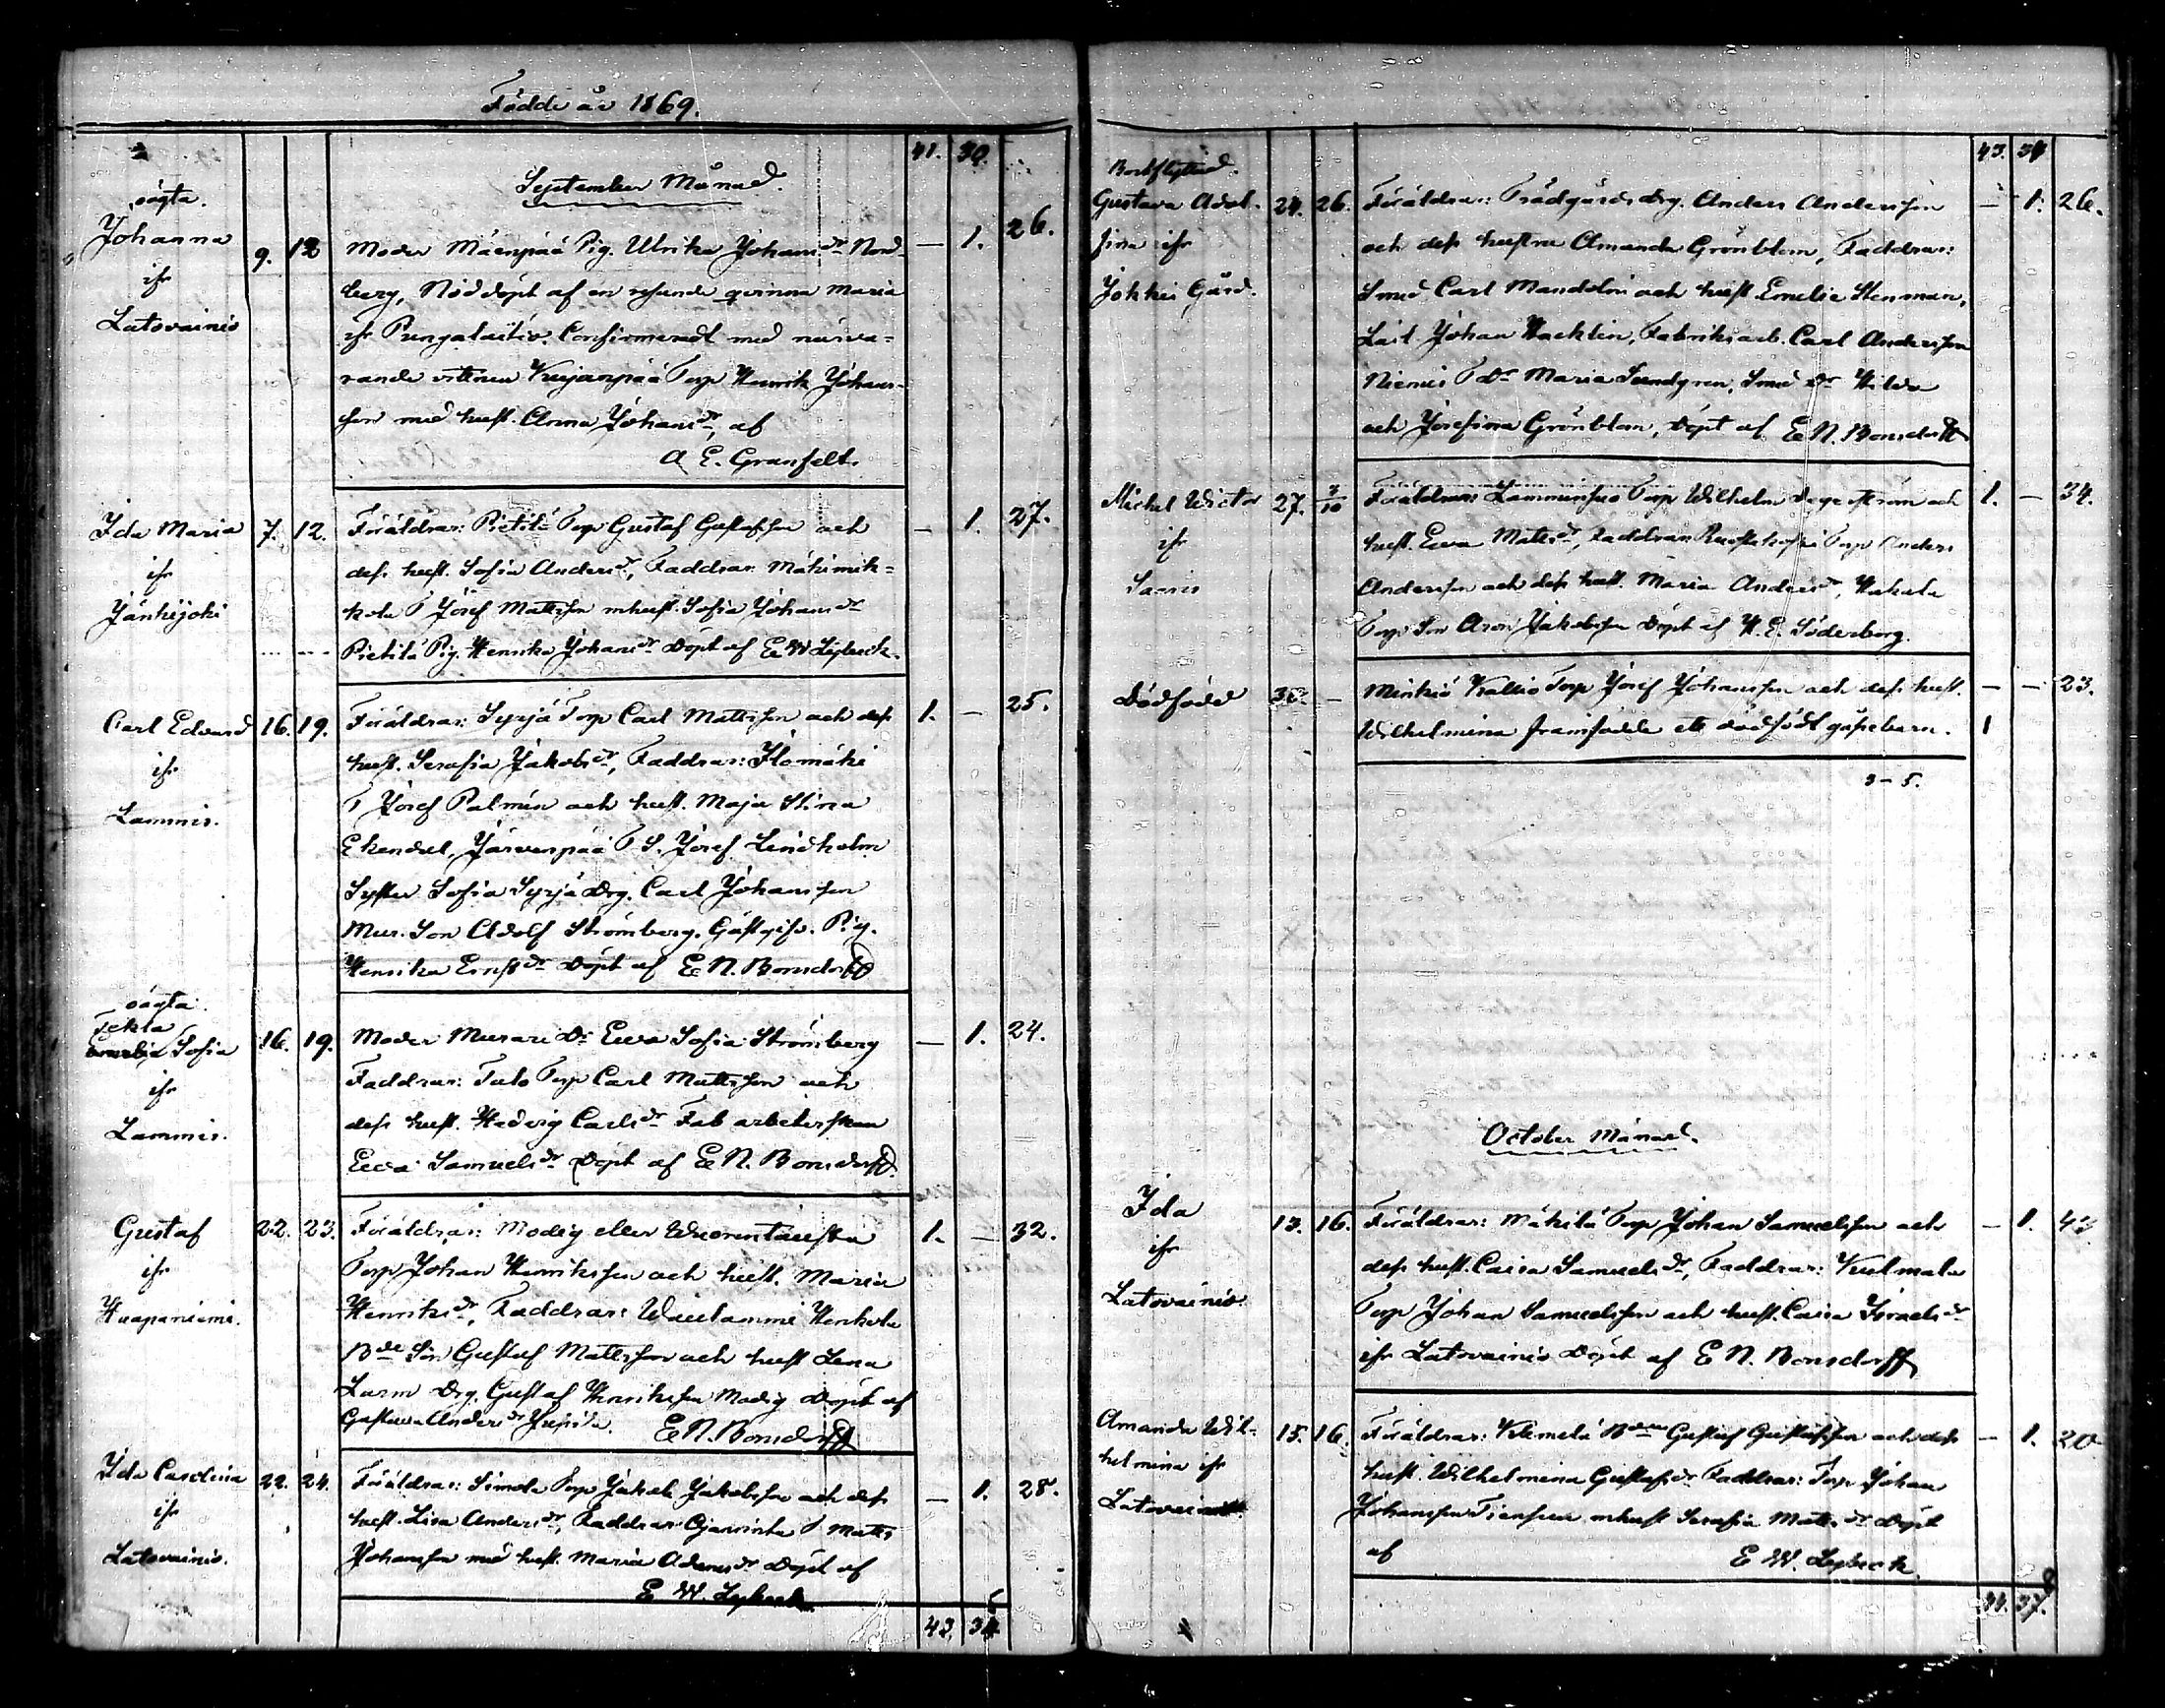 Födde år 1869.
41. 30.
September Månad.
oägta.
Johanna 9. 12 Moder Mäenpää Pig. Ulrika Johansdr Nord- — 1. 26.
ifr berg, Nöddöpt af en resande qvinna Maria
Latovainio ifr Pungalaitio. Confirmeradt med närva-
rande vittnen Kujanpää Torp Henrik Johans-
son med hust. Anna Johansdr, af
A E. Granfelt.
Ida Maria 7. 12. Föräldrar: Pietilä Torp Gustaf Gustafsson och — 1. 27.
ifr dess hust. Sofia Andersdr, Faddrar: Mäkimik-
Jänhijoki kola T Josef Mattsson m hust. Sofia Johansdr
Pietilä Pig. Henrika Johansdr Döpt af E W Lybeck.
Carl Edvard 16. 19. Föräldrar: Syrjä Torp Carl Mattsson och dess 1. — 25.
ifr hust. Serafia Jakobsdr, Faddrar: Ilomäki
Lammis. T Josef Palmén och hust. Maja Stina
Ekendal, Järvenpää T S. Josef Lindholm
Syster Sofia Syrjä Drg. Carl Johansson
Mur. Son Adolf Strömberg. Gästgifv. Pig.
Henrika Ernstdr Döpt af E N. Bonsdorff
oägta.
Tekla
Sofia 16. 19. Moder Murare Dr Eva Sofia Strömberg — 1. 24.
ifr Faddrar: Talo Torp Carl Mattsson och
Lammis. dess hust. Hedvig Carlsdr Fab arbeterskan
Eeva Samuelsdr Döpt af E N. Bonsdorff.
Gustaf 22. 23. Föräldrar: Modig eller Wuorentausta 1. — 32.
ifr Torp Johan Henriksson och hust. Maria
Haapaniemi. Henriksdr, Faddrar: Henkola
Bde Son Gustaf Mattsson och hust Lena
Drg. Gustaf Henriksson Modig Döpt af
Gustava Andersdr E N. Bonsdorff
Ida Carolina 22. 24. Föräldrar: Simola Torp Jakob Jakobsson och dess — 1. 28.
ifr hust. Lisa Andersdr, Faddrar: Ojanrinta T Matts
Latovainio. Johansson med hust. Maria Adamsdr Döpt af
E W. Lybeck.
43. 34
43. 34
Bortflyttad.
Gustava Adol- 24. 26. Föräldrar: Trädgårds Drg. Anders Andersson — 1. 26.
fina ifr och dess hustru Amanda Grönblom, Faddrar:
Jokkis Gård. Smed Carl Mandolin och hust Emelie Stenman,
Johan Hacklin, Fabriksarb. Carl Andersson
Niemis T Dr Maria Sundgren, Smed Dr Hilda
och Josefina Grönblom, Döpt af E N. Bonsdorff
Michel Wictor 27. 3/10 Föräldrar: Lammensuo Torp Wilhelm och 1. — 34.
ifr hust. Eeva Mattsdr, Faddrar: Torp Anders
Andersson och dess hust. Maria Andersdr, Hakala
Torp Son Aron Jakobsson Döpt af H. E. Söderborg.
Dödfödd 30. — Minkiö Kallio Torp Josef Johansson och dess hust. — — 23.
Wilhelmina framfödde ett dödfödt gossebarn. 1
3-5.
October Månad.
Ida 13. 16. Föräldrar: Mäkilä Torp Johan Samuelsson och — 1. 43
ifr dess hust. Caisa Samuelsdr, Faddrar: Kulmala
Latovainio Torp Johan Samuelsson och hust. Caisa Israelsdr
ifr Latovainio Döpt af E N. Bonsdorff
Amanda Wil- 15. 16. Föräldrar: Klemelä Bonden Gustaf Gustafsson och dess — 1. 20
helmina ifr hust. Wilhelmina Gustafsdr Faddrar: Torp Johan
Johansson Tiensuu m hust Serafia Mattsdr Döpt
af E W. Lybeck.
37.